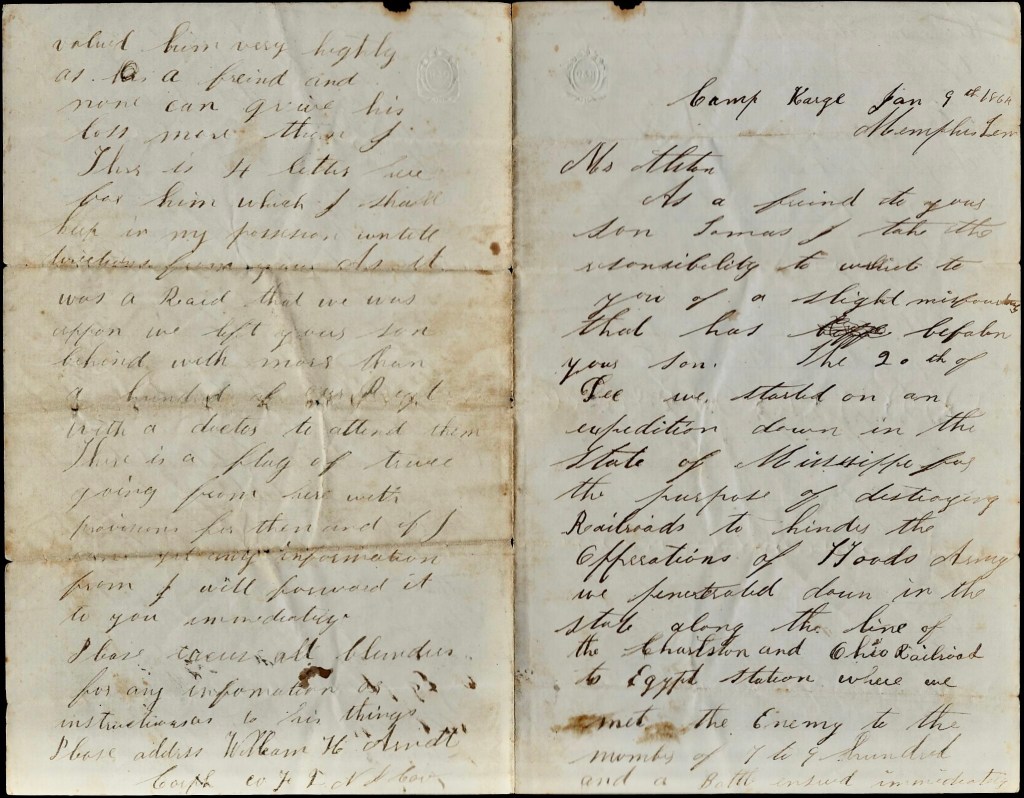 Camp Karge Jan 9th 186
Memphis Ten
Ms Alston
As a freind to your
son I take the
resonsibility to
you of a slight
that has befalen
your son. The 20th of
Dec we started on an
expedition down in the
State of Mississippe for
the purpose of distroying
Railroads to hinder the
Opperations of Hoods Army
we penetrated down in the
state along the line of
the and Ohio Railroad
to Egypt station where we
met the Enemy to the
of 7 to 9 hundred
and a Battle ensued immediately
valued him very highly
as a freind and
none can greive his
loss more then I
There is 4 letters here
for him which I shall
keep in my untill
directions from your As it
was a Raid that we was
appon we left your son
behind with more than
a hundred of our Regt
with a docter to attend them
There is a flag of truce
going from here with
provisions for them and if I
any information
from I will forward it
to you immediatly
Please excuse all blunders
for any information or
instructions as to his things
Please address William H Arndt
Corpl Co F 2 N J Cav